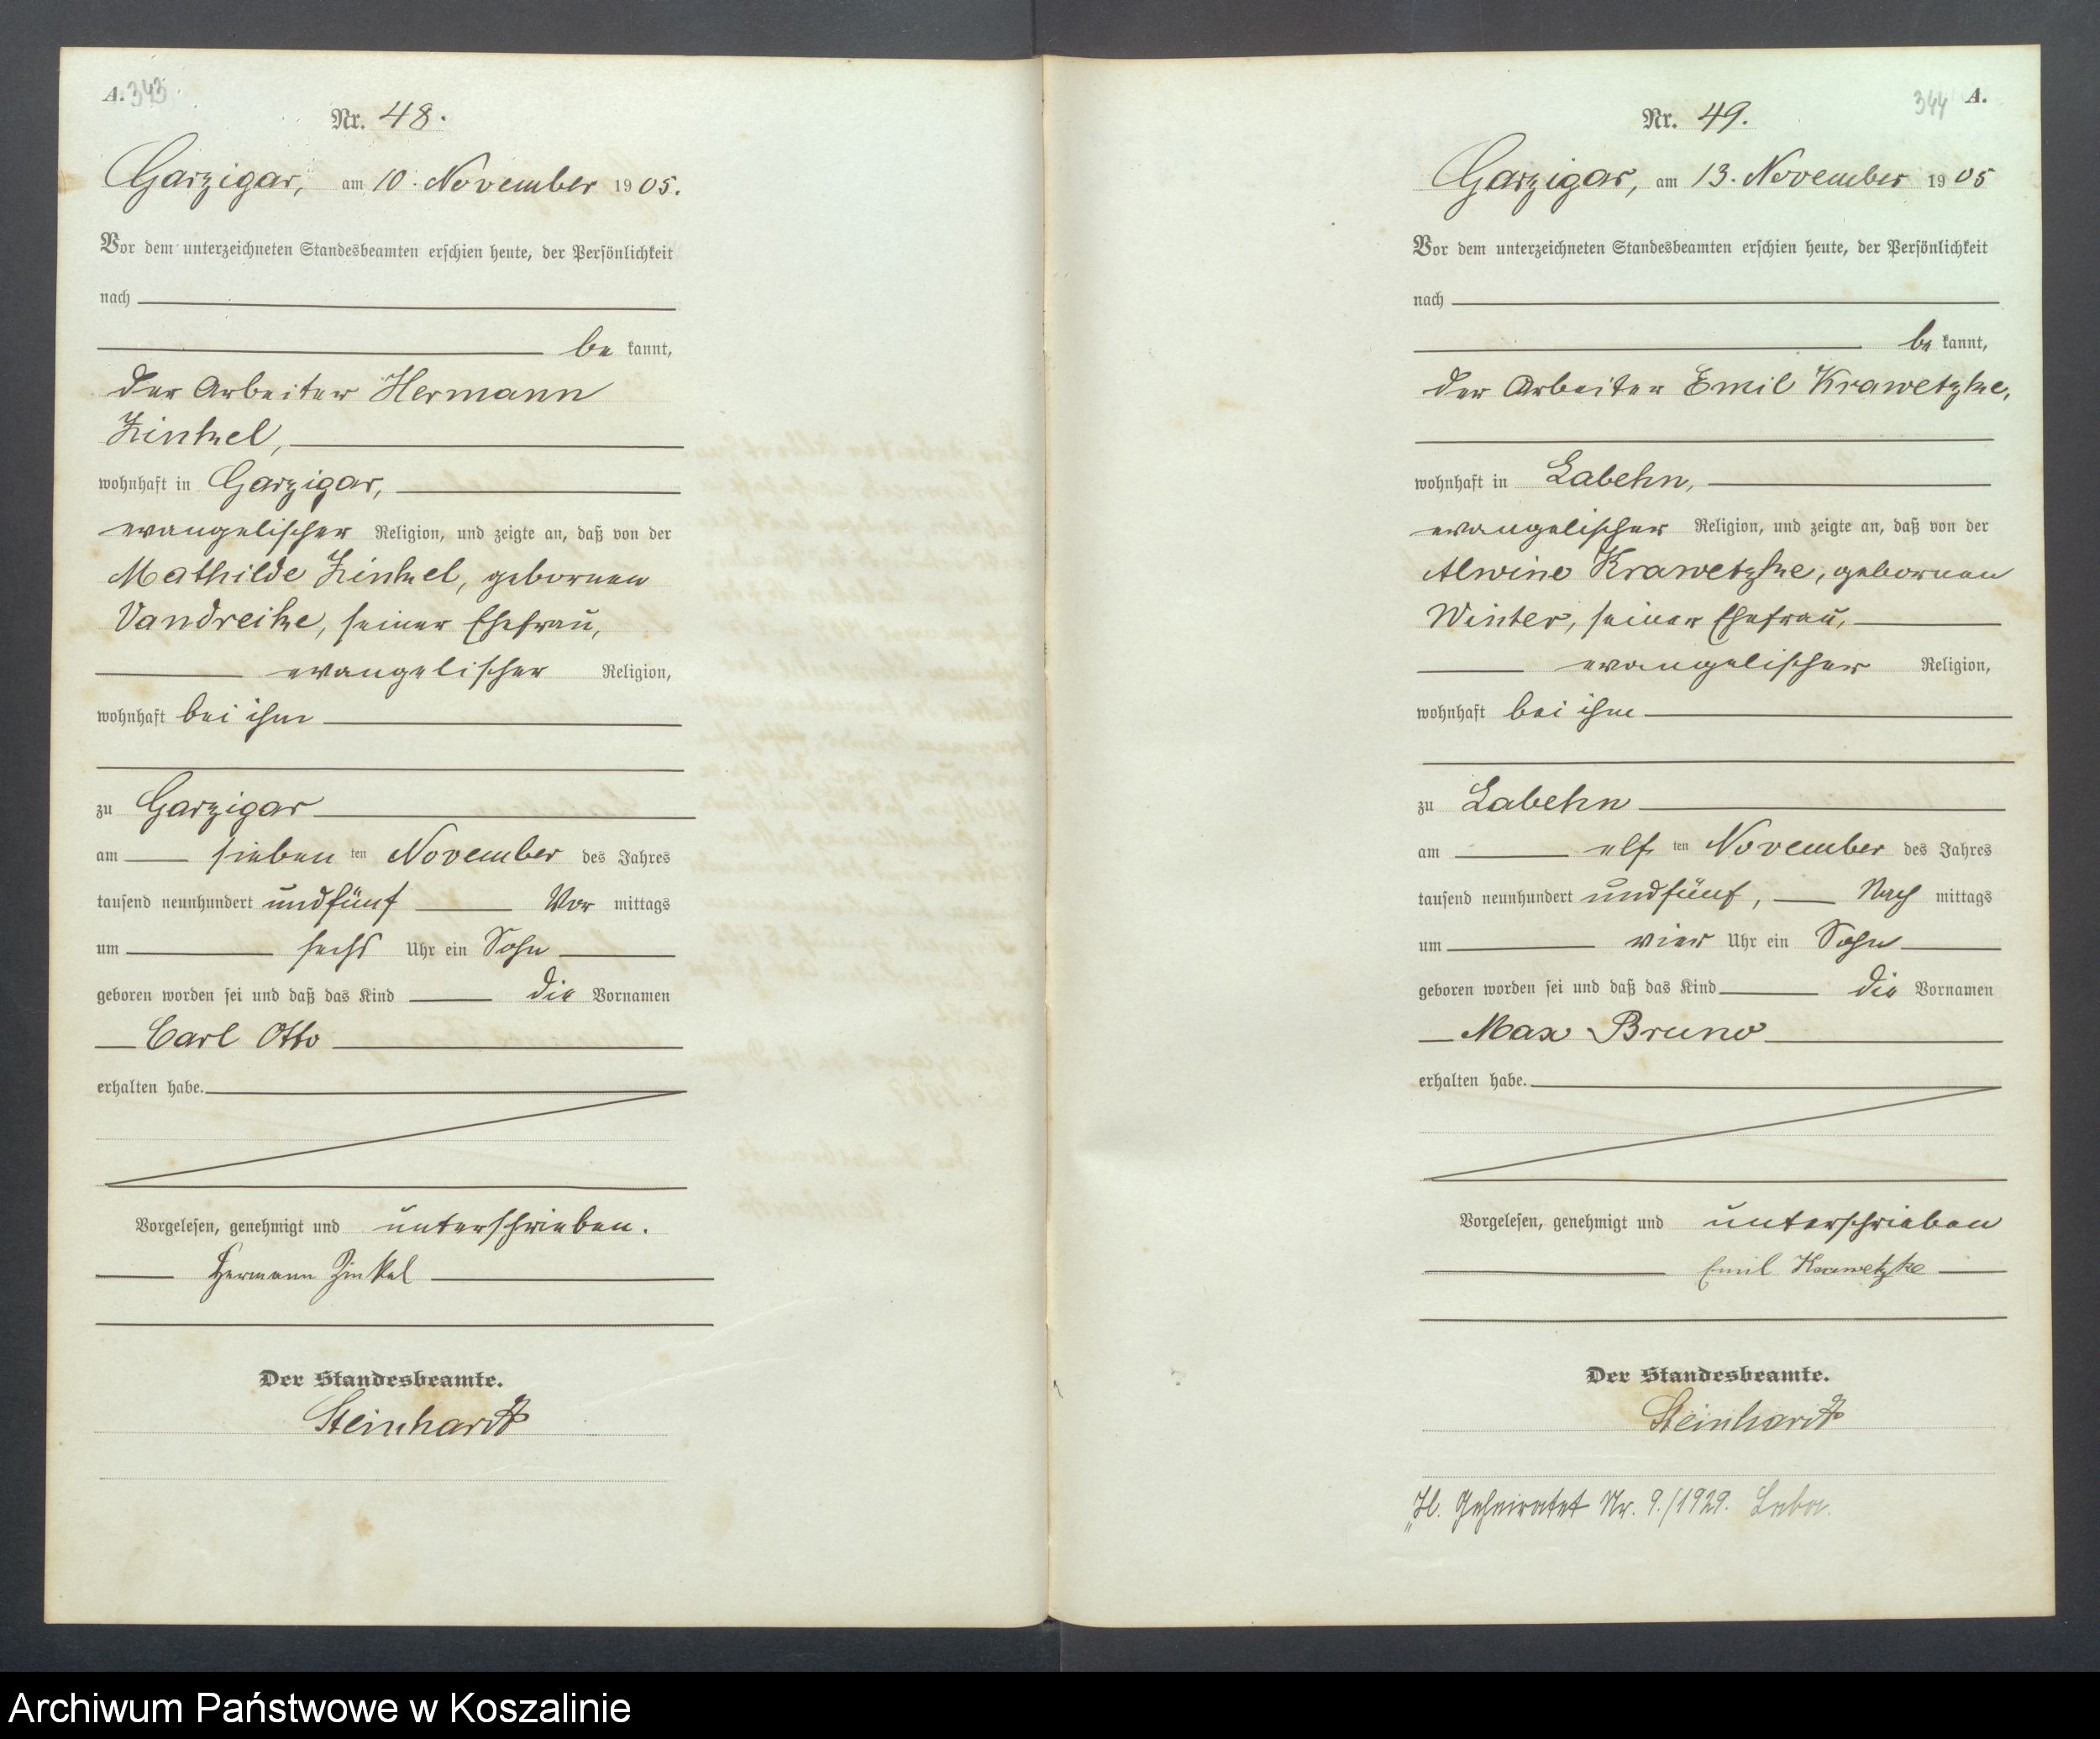 A. 343
Nr. 48.
Garzigar, am 10. November 1905.
Vor dem unterzeichneten Standesbeamten erschien heute, der Persönlichkeit
nach
be kannt,
der Arbeiter Hermann
Zinkel,
wohnhaft in Garzigar,
evangelischer Religion, und zeigte an, daß von der
Mathilde Zinkel, gebornen
Vandreike, seiner Ehefrau,
evangelischer Religion,
wohnhaft bei ihm
zu Garzigar
am sieben ten November des Jahres
tausend neunhundert undfünf Vor mittags
um sechs Uhr ein Sohn
geboren worden sei und daß das Kind die Vornamen
Carl Otto
erhalten habe.
Vorgelesen, genehmigt und unterschrieben.
Hermann Zinkel
Der Standesbeamte.
Steinhardt
344 A.
Nr. 49.
Garzigar, am 13. November 1905
Vor dem unterzeichneten Standesbeamten erschien heute, der Persönlichkeit
nach
be kannt,
der Arbeiter Emil Krawetzke,
wohnhaft in Labehn,
evangelischer Religion, und zeigte an, daß von der
Alwine Krawetzke, gebornen
Winter, seiner Ehefrau,
evangelischer Religion,
wohnhaft bei ihm
zu Labehn
am elf ten November des Jahres
tausend neunhundert undfünf, Nach mittags
um vier Uhr ein Sohn
geboren worden sei und daß das Kind die Vornamen
Max Bruno
erhalten habe.
Vorgelesen, genehmigt und unterschrieben
Emil Krawetzke
Der Standesbeamte.
Steinhardt
Geheiratet Nr. 9./1929. Leba.
Archiwum Państwowe w Koszalinie